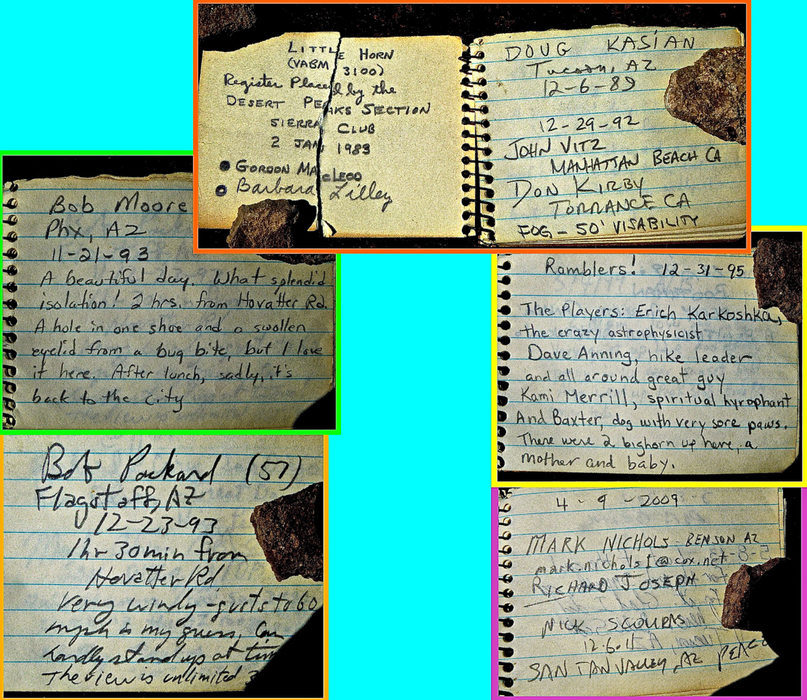 LITTLE HORN
(VABM 3100)
Register Placed by the
DESERT PEAKS SECTION
SIERRA CLUB
2 JAN 1983
GORDON MACLEOD
Barbara Lilley
DOUG KASIAN
Tucson, AZ
12-6-89
12-29-92
JOHN VITZ
MANHATTAN BEACH CA
DON KIRBY
TORRANCE CA
FOG - 50' VISABILITY
Bob Moore
Phx, AZ
11-21-93
A beautiful day. What splendid
isolation! 2 hrs. from Hovatter Rd.
A hole in one shoe and a swollen
eyelid from a bug bite, but I love
it here. After lunch, sadly, it's
back to the city
Bob Packard (57)
Flagstaff, AZ
12-23-93
1hr 30min from
Hovatter Rd.
Very windy - gusts to 60
mph is my guess, Can
hardly stand up at
The view is unlimited
Ramblers! 12-31-95
The Players: Erich Karkoshka,
the crazy astrophysicist
Dave Anning, hike leader
and all around great guy
Kami Merrill, spiritual hyrophant
And Baxter, dog with very sore paws.
There were 2 bighorn up here, a
mother and baby.
4-9-2009
MARK NICHOLS BENSON AZ
mark.nichols1@cox.net
RICHARD JOSEPH
NICK SCOURAS
12.6.15
SAN TAN VALLEY, AZ PEACE